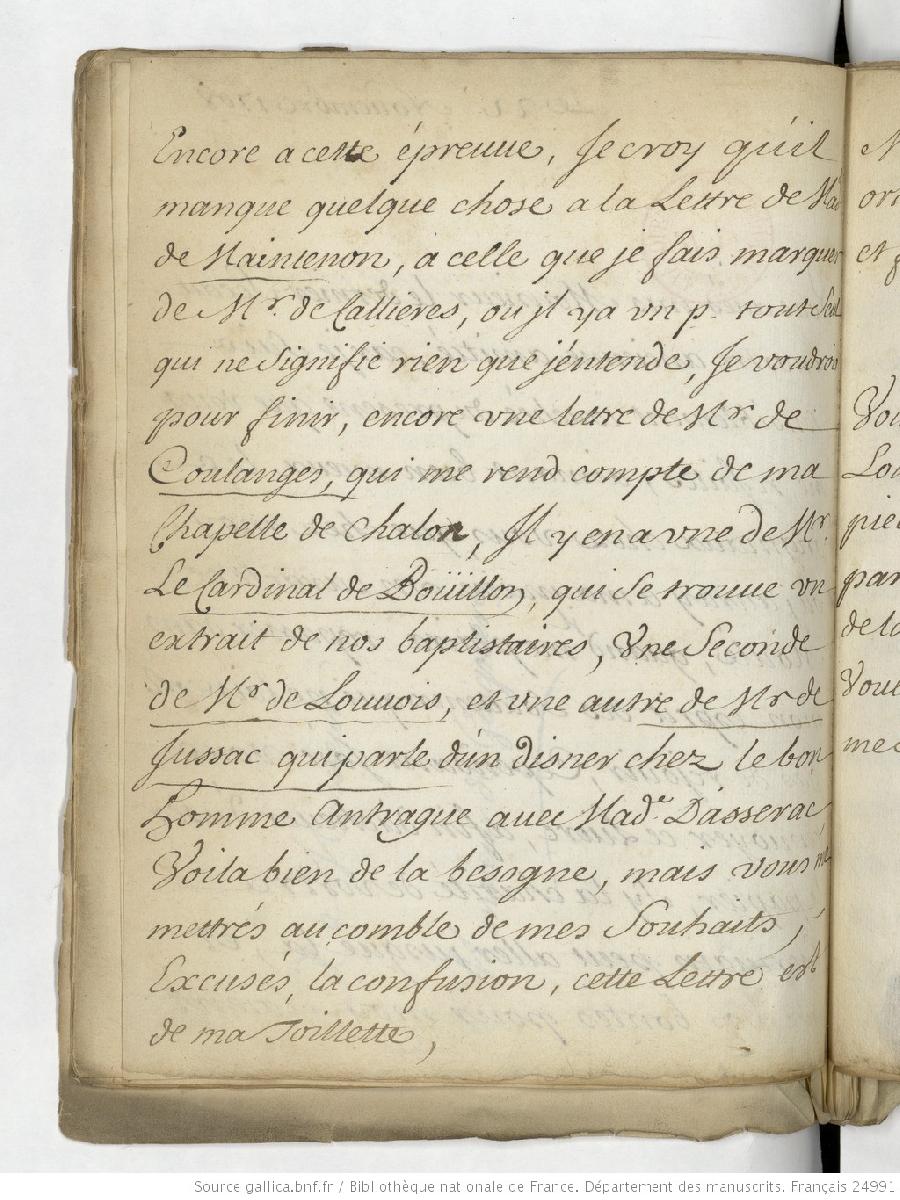 Encore a cette épreuue, Je croy qu'il
manque quelque chose a la Lettre de Mad
de Maintenon, a celle que je fais marquer
de Mr. de Callieres, ou jl ya vn p. tout seul
qui ne signifie rien que j'entende, Je voudrois
pour finir, encore vne lettre de Mr. de
Coulanges, qui me rend compte de ma
Chapelle de Chalon, Jl y en a vne de Mr.
Le Cardinal de Boüillon, qui se trouue vn
extrait de nos baptistaires, Vne Seconde
de Mr. de Louuois, et vne autre de Mr. de
Jussac qui parle d'un disner chez le bon
homme Antrague auec Made. Dasserac
Voila bien de la besogne, mais vous me
mettrés au comble de mes Souhaits,
Excusés, la confusion, cette Lettre est
de ma Toillette,
N
et
Vou
pie
par
Vou
Source gallica.bnf.fr / Bibliothèque nationale de France. Département des manuscrits. Français 24991